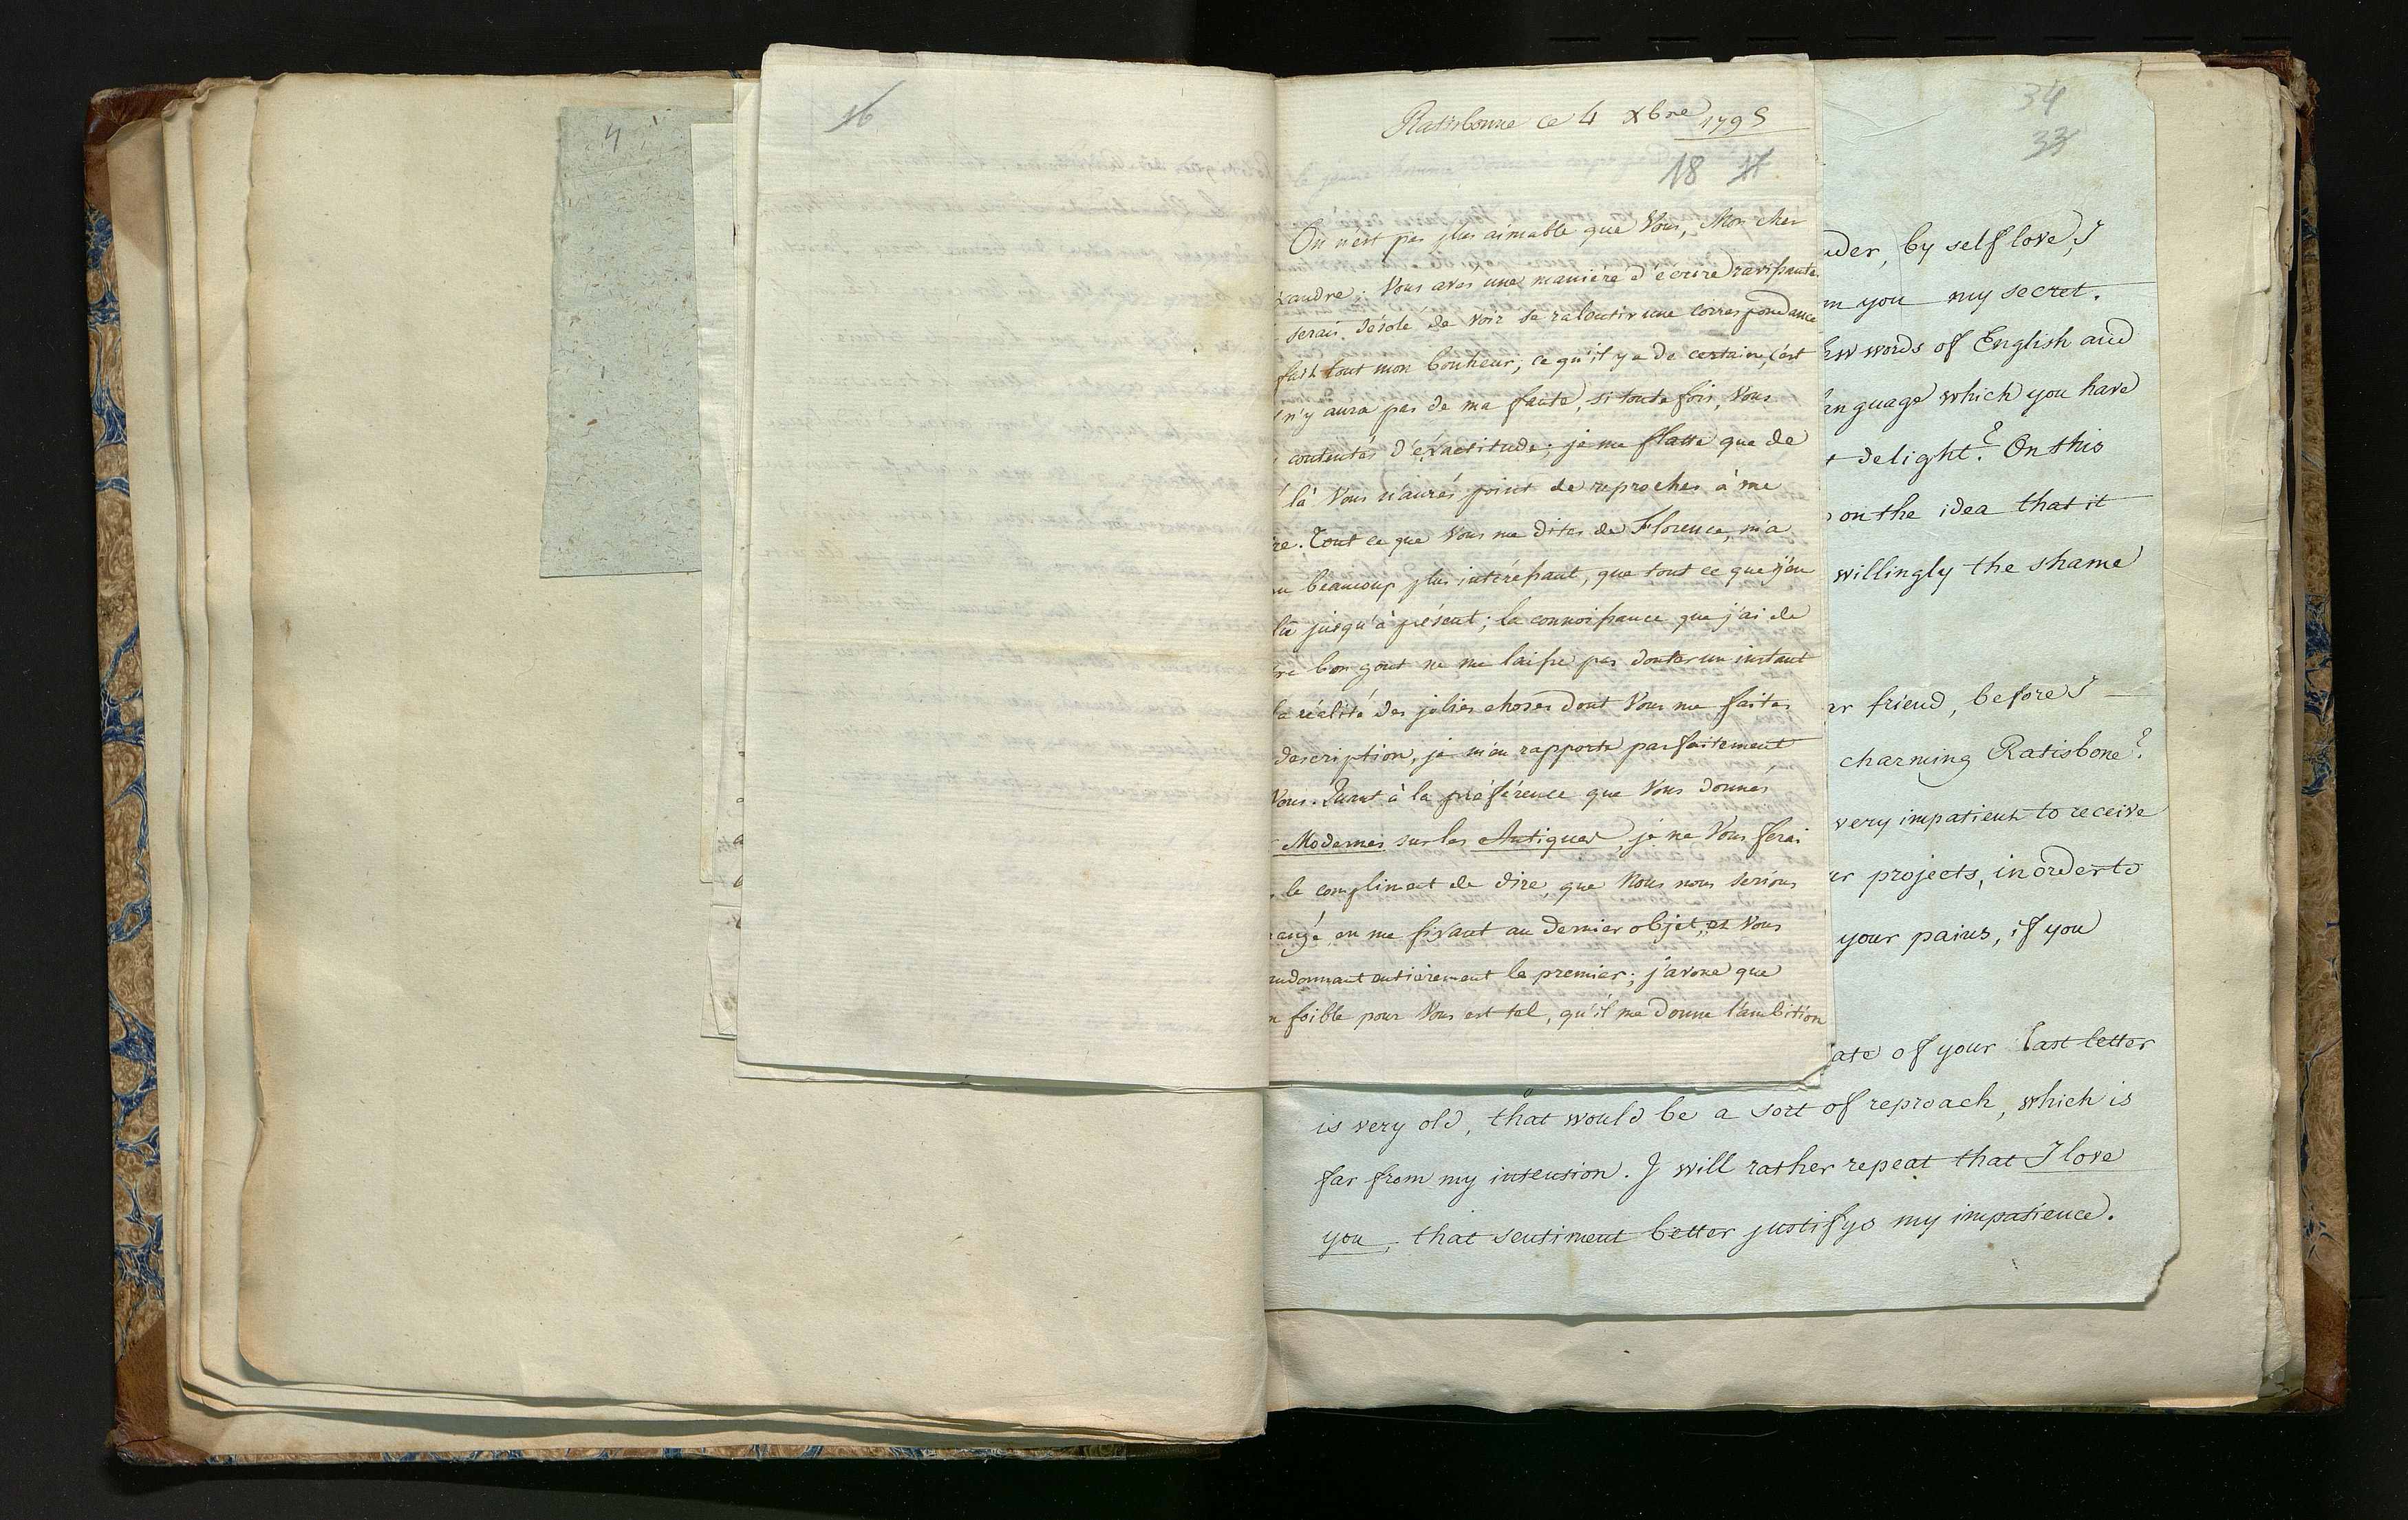 4
16
Ratisbonne ce 4 xbre 1795
18 17
On n'est pas plus aimable que Vous, Mon cher
xandre; Vous avés une maniére d'ecrire ravissante
serais désolé de voir se ralentir une correspondance
fait tout mon bonheur; ce qu'il y a de certain, c'est
n'y aura pas de ma faute, si toute fois, Vous
contentés d'éxactitude; je me flatte que de
là Vous n'aurés point de reproches à me
re. Tout ce que Vous me dites de Florence, m'a
u beaucoup plus intéressant, que tout ce que j'en
lû jusqu'à présent; la connoissance que j'ai de
re bon gout ne me laisse pas douter un instant
la réalité des jolies choses dont Vous me faites
description, je m'en rapporte parfaitement
Vous. Quant à la préférence que Vous donnés
Modernes sur les Antiques, je ne Vous ferai
le compliment de dire, que Nous nous serions
rangé, en me fixant au dernier objet, et Vous
andonnant entierement le premier; j'avoue que
n foible pour Vous est tel, qu'il me donne l'ambition
34
33
uder, by self love, I
m you my secret.
few words of English and
anguage which you have
t delight? On this
on the idea that it
willingly the shame
ar friend, before I
charming Ratisbone?
very impatient to receive
ur projects, in order to
your pains, if you
ate of your last letter
is very old, that would be a sort of reproach, which is
far from my intension. I will rather repeat that I love
you, that sentiment better justifys my impatience.